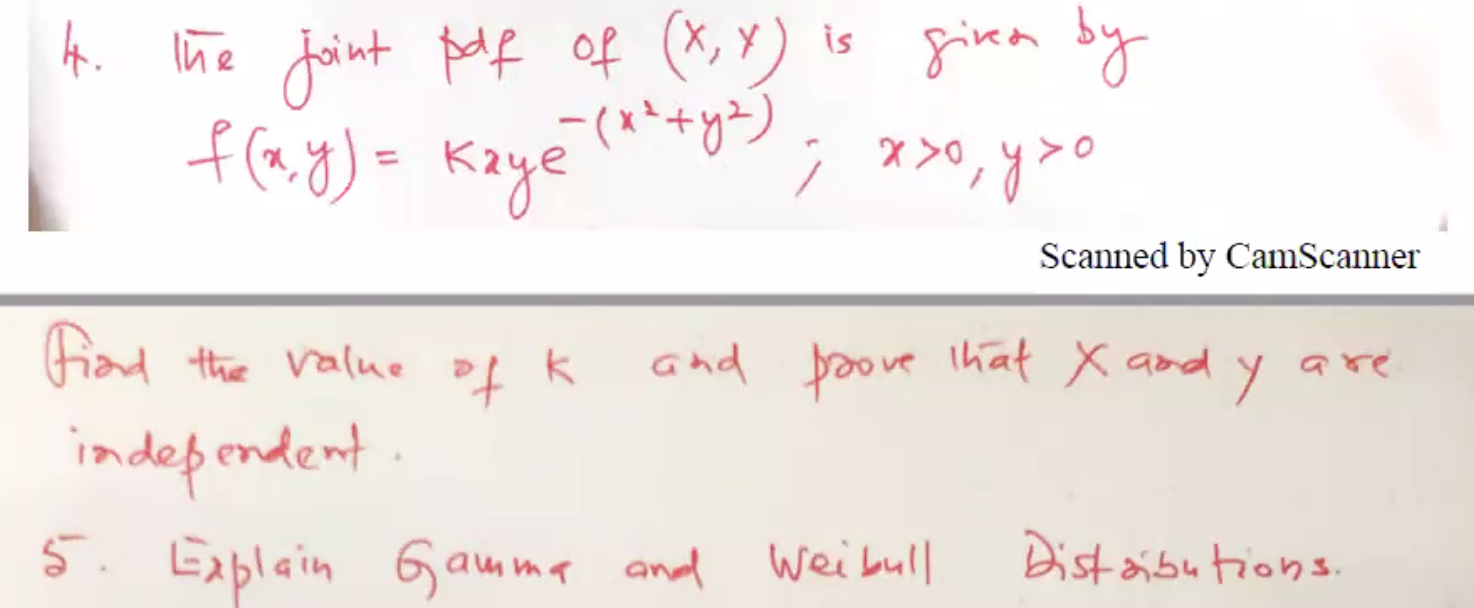 4. The joint pdf of (X, Y) is given by
f(x,y) = Kxye^-(x²+y²) ; x>0, y>0
Scanned by CamScanner
find the value of K and prove that X and y are
independent.
5. Explain Gamma and Weibull Distributions.